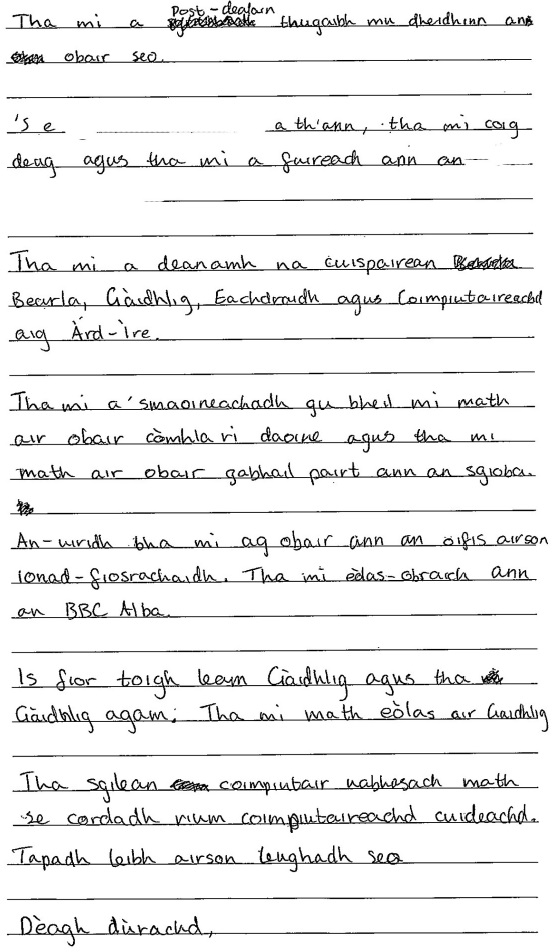 Tha mi a post-dealain thugaibh mu dheidhinn an
obair seo.
'S e a th'ann, tha mi coig
deag agus tha mi a fuireach ann an
Tha mi a deanamh na cuispairean
Bearla, Gàidhlig, Eachdraidh agus Coimpiutaireachd
aig Àrd-Ìre.
Tha mi a' smaoineachadh gu bheil mi math
air obair còmhla ri daoine agus tha mi
math air obair gabhail pairt ann an sgioba.
An-uiridh bha mi ag obair ann an oifis airson
ionad-fiosrachaidh. Tha mi eòlas-obrach ann
an BBC Alba.
Is fìor toigh leam Gàidhlig agus tha
Gàidhlig agam; Tha mi math eòlas air Gaidhlig
Tha sgilean coimpiutair uabhasach math
se cordadh rium coimpiutaireachd cuideachd.
Tapadh leibh airson leughadh seo
Dèagh dùrachd,